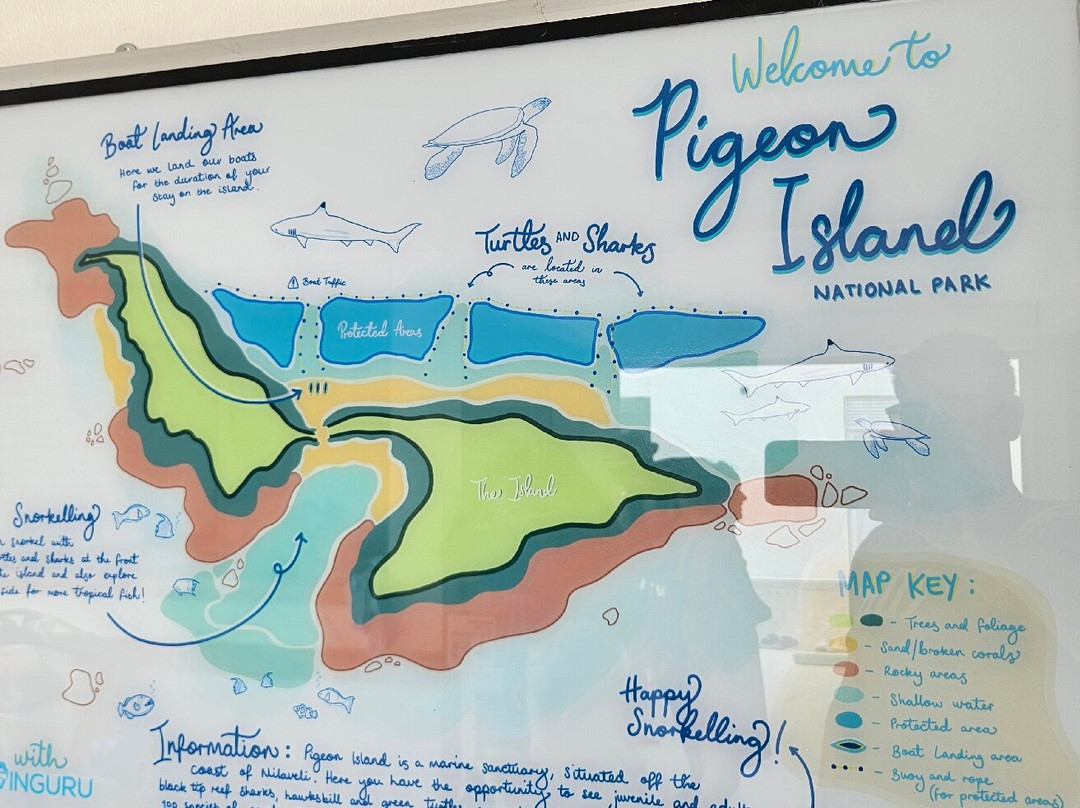 Welcome to
Pigeon
Island
NATIONAL PARK
Boat Landing Area
Here we land our boats
for the duration of your
stay on the island.
Turtles AND Sharks
are located in
these areas
Boat Traffic
Protected Areas
The Island
Snorkelling
snorkel with
and sharks at the front
island and also explore
side for more tropical fish!
MAP KEY:
- Trees and foliage
- Sand/broken corals
- Rocky areas
- Shallow water
- Protected area
- Boat Landing area
- Buoy and rope
(for protected areas)
Happy
Snorkelling!
Information: Pigeon Island is a marine sanctuary, situated off the
coast of Nilaveli. Here you have the opportunity to see juvenile and
black tip reef sharks, hawksbill and green turtles
100 species of
with
INGURU